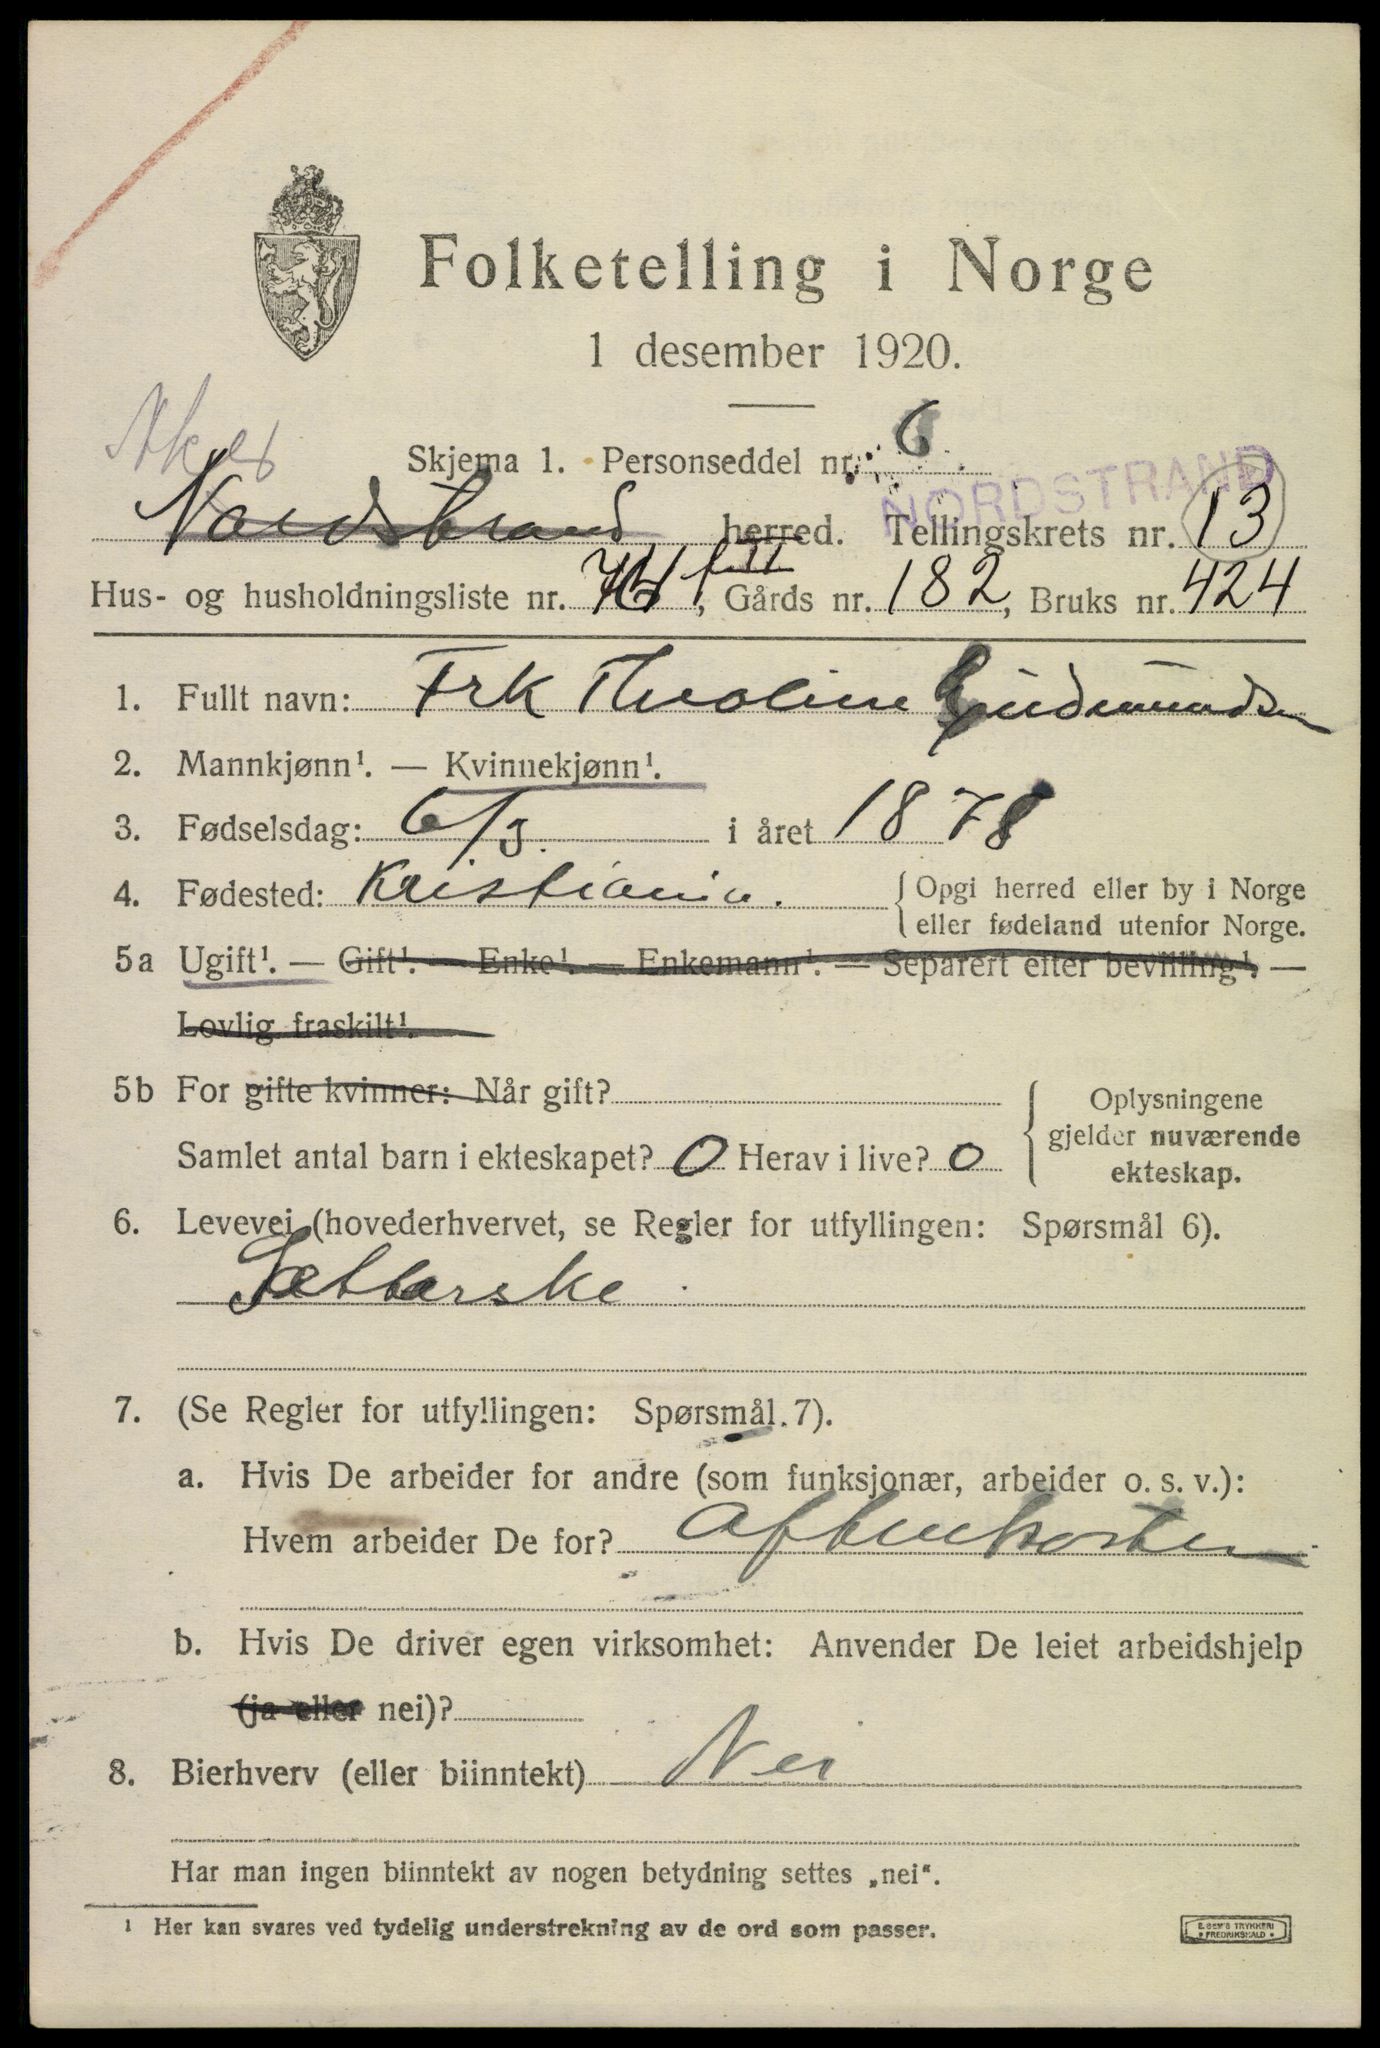 Folketelling i Norge
1 desember 1920.
Aker
Skjema 1. Personseddel nr. 6
NORDSTRAND
Nordstrand herred. Tellingskrets nr. 13
Hus- og husholdningsliste nr. , Gårds nr. 182, Bruks nr. 424
1. Fullt navn: Frk Theoline Gudmundsen
2. Mannkjønn¹. — Kvinnekjønn¹.
3. Fødselsdag: 6/3. i året 1878
4. Fødested: Kristiania. { Opgi herred eller by i Norge
eller fødeland utenfor Norge.
5a Ugift¹. — Gift¹. — Enke¹. — Enkemann¹. — Separert efter bevilling¹. —
Lovlig fraskilt¹.
5b For gifte kvinner: Når gift?
Samlet antal barn i ekteskapet? 0 Herav i live? 0
{ Oplysningene
gjelder nuværende
ekteskap.
6. Levevei (hovederhvervet, se Regler for utfyllingen: Spørsmål 6).
Sætterske
7. (Se Regler for utfyllingen: Spørsmål 7).
a. Hvis De arbeider for andre (som funksjonær, arbeider o. s. v.):
Hvem arbeider De for? Aftenposten
b. Hvis De driver egen virksomhet: Anvender De leiet arbeidshjelp
(ja eller nei)?
8. Bierhverv (eller biinntekt) Nei
Har man ingen biinntekt av nogen betydning settes „nei“.
¹ Her kan svares ved tydelig understrekning av de ord som passer.
E. SEM'S TRYKKERI
• FREDRIKSHALD •